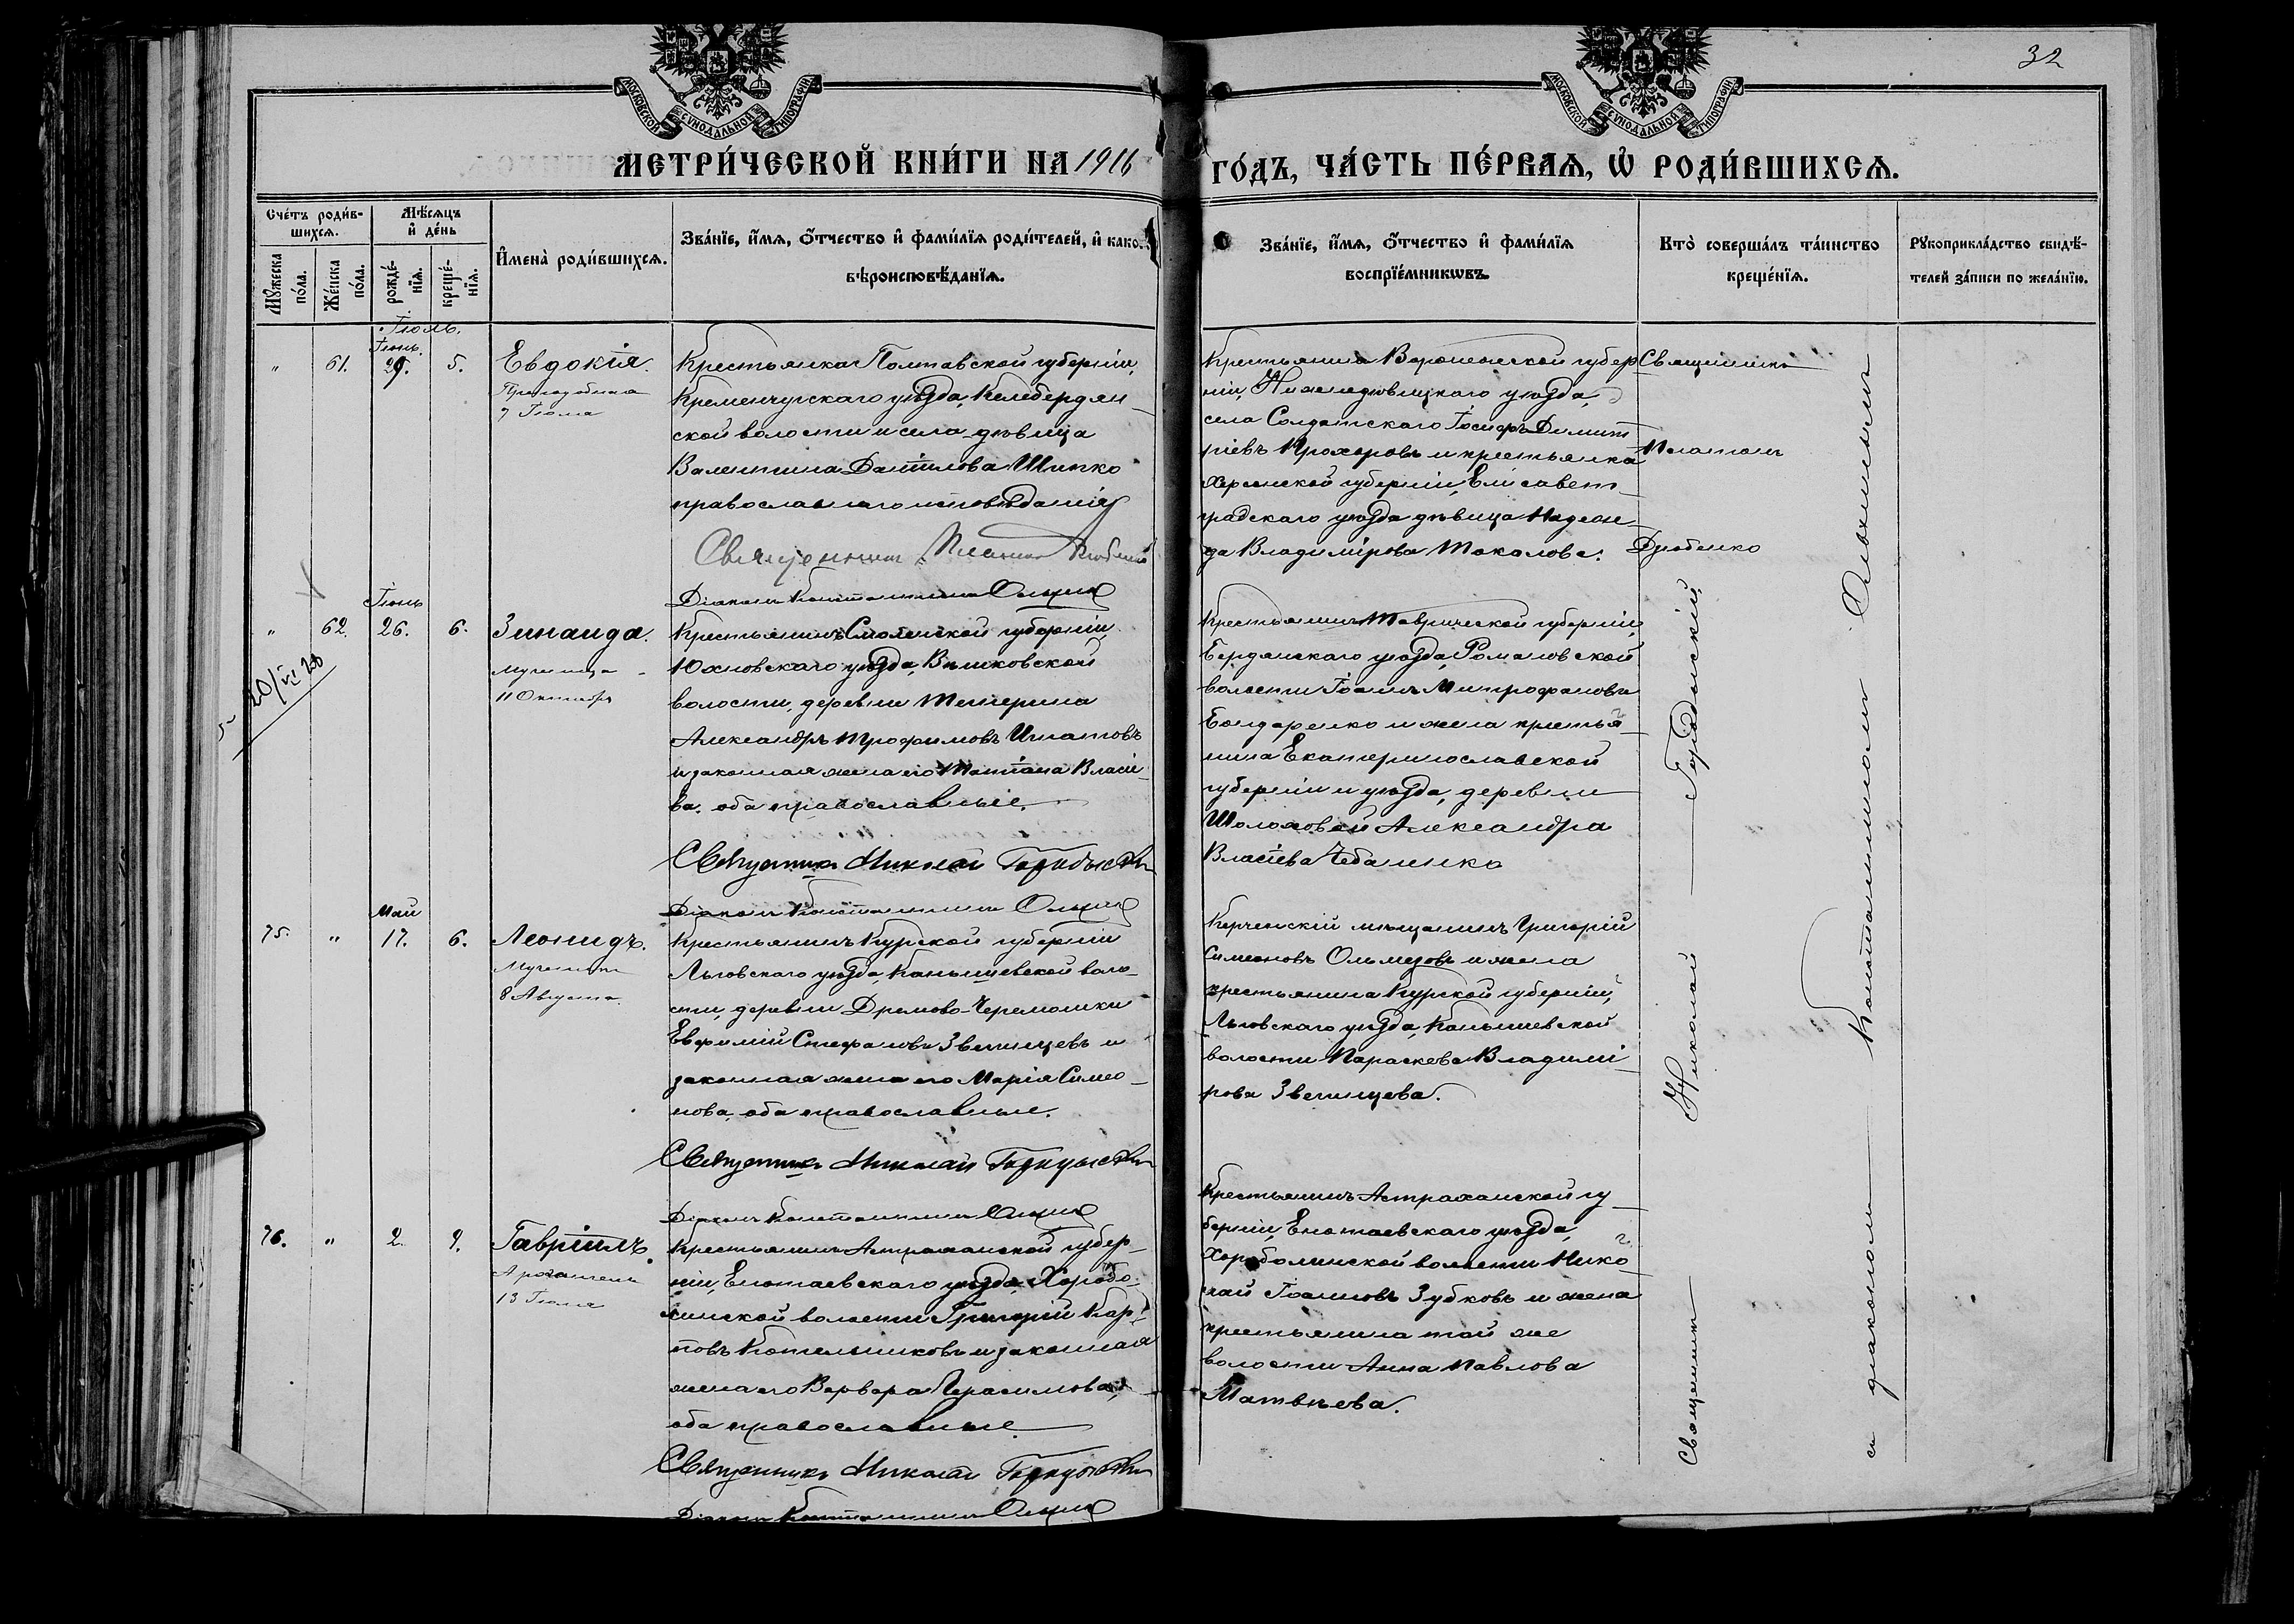 32
МОСКОВСКОЙ СѴНОДАЛЬНОЙ ТИПОГРАФІИ
МОСКОВСКОЙ СѴНОДАЛЬНОЙ ТИПОГРАФІИ
МЕТРИ́ЧЕСКОЙ КНИ́ГИ НА 1916
ГО́ДЪ, ЧА́СТЬ ПЕ́РВАѦ, Ѡ҆ РОДИ́ВШИХСѦ.
Сче́тъ роди́в-
шихсѧ.
Мꙋ́жеска по́ла.
Же́нска по́ла.
Мѣ́сѧцъ и҆ де́нь
рожде́-
нїѧ.
креще́-
нїѧ.
И҆мена̀ роди́вшихсѧ.
Зва́нїе, и҆́мѧ, ѻ҆́тчество и҆ фами́лїѧ роди́телей, и҆ како́
вѣроисповѣ́данїѧ.
Зва́нїе, и҆́мѧ, ѻ҆́тчество и҆ фами́лїѧ
воспрїе́мникѡвъ.
Кто̀ соверша́лъ та́инство
креще́нїѧ.
Рꙋкоприкла́дство свидѣ́-
телей за́писи по жела́нїю.
Іюль.
Іюнь.
" 61. 29. 5. Евдокія.
Преподобная
7 Іюля
Крестьянка Полтавской губерніи,
Кременчугскаго уѣзда, Келебердян-
ской волости и села дѣвица
Валентина Даніилова Шипко
православнаго исповѣданія
Священникъ Платонъ
Діаконъ Константинъ
Крестьянинъ Воронежской губер
ніи, Нижнедѣвицкаго уѣзда,
села Солдатскаго Іосифъ Димит
ріевъ Прохоровъ и крестьянка
Херсонской губерніи, Елисавет-
градскаго уѣзда дѣвица Надеж-
да Владимірова Токалова.
Священникъ
Платонъ
Дробенко
Іюнь
" 62. 26. 6. Зинаида.
Мученица
11 Октября
20/VI 28
5
Крестьянинъ Смоленской губерніи
Юхновскаго уѣзда, Вешковской
волости, деревни Тетерина
Александръ Трофимовъ Игнатовъ
и законная жена его Татіана Власіе-
ва, оба православные.
Священникъ Николай
Діаконъ Константинъ
Крестьянинъ Таврической губерніи,
Бердянскаго уѣзда, Романовской
волости Іоаннъ Митрофановъ
Бондаренко и жена крестья-
нина Екатеринославской
губерніи и уѣзда, деревни
Шолоховой Александра
Власіева Чебаненко
Май
75. " 17. 6. Леонидъ.
Мученикъ
8 Августа.
Крестьянинъ Курской губерніи
Льговскаго уѣзда, Конышевской воло-
сти, деревни Дремово-Черемошки
Евфимій Стефановъ Звегинцевъ и
законная жена его Марія Симео-
нова, оба православные.
Священникъ Николай
Діаконъ Константинъ
Керченскій мѣщанинъ Григорій
Симеоновъ Ольмезовъ и жена
крестьянина Курской губерніи,
Льговскаго уѣзда, Конышевской
волости Параскева Владимі-
рова Звегинцева.
76. " 2. 9. Гавріилъ.
Архангелъ
13 Іюля
Крестьянинъ Астраханской губер-
ніи, Енотаевскаго уѣзда, Харобо-
линской волости Григорій Кар-
повъ Котельниковъ и законная
жена его Варвара Герасимова,
оба православные
Священникъ Николай
Діаконъ Константинъ
Крестьянинъ Астраханской гу-
берніи, Енотаевскаго уѣзда,
Хароболинской волости Нико-
лай Іоанновъ Зубковъ и жена
крестьянина той же
волости Анна Павлова
Матвѣева.
Священникъ Николай
съ діакономъ Константиномъ